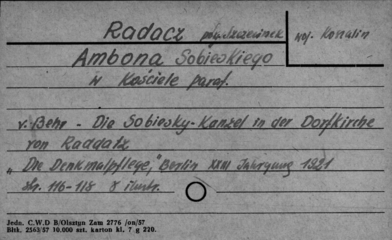 Radacz pow. Szczecinek woj. Koszalin
Ambona Sobieskiego
w Kościele paraf.
v. Behr - Die Sobiesky-Kanzel in der Dorfkirche
von Raddatz
„Die Denkmalpflege," Berlin XXIII Jahrgang 1921
str. 116-118 8 ilustr.
Jedn. C.W.D B/Olsztyn Zam 2776 /on/57
Bltk. 2563/57 10.000 szt. karton kl. 7 g 220.